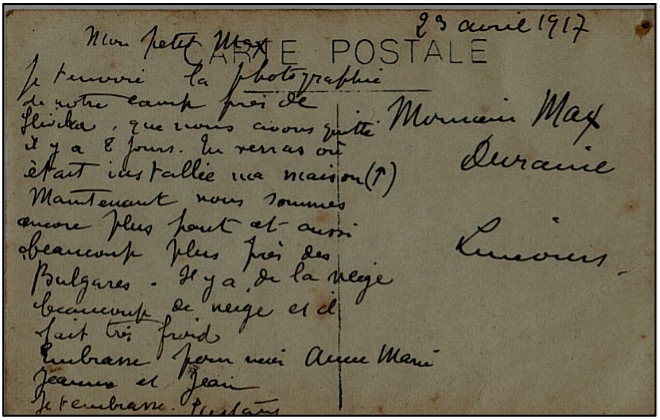 23 avril 1917
CARTE POSTALE
Mon petit Max
Je t'envoie la photographie
de notre camp près de
que nous avons quitté
il y a 8 jours. Tu verras où
était installée ma maison (↑)
Maintenant nous sommes
encore plus haut et aussi
beaucoup plus près des
Bulgares - Il y a de la neige
beaucoup de neige et il
fait très froid
Embrasse pour moi Anne Marie
Jeanne et Jean
Je t'embrasse.
Max